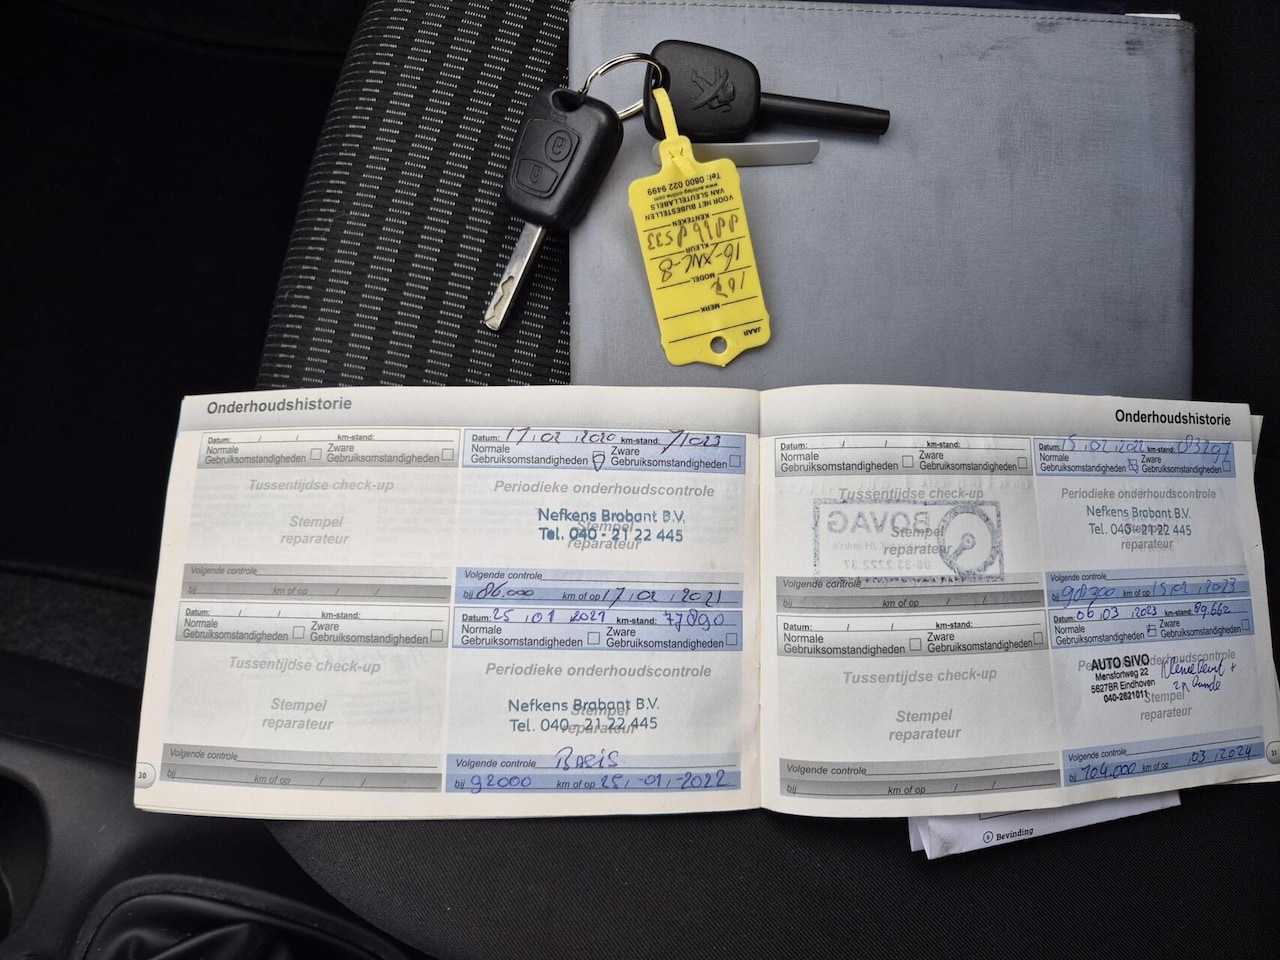 Tel: 0800 022 9499
www.autotag-online.com
VAN SLEUTELLABELS
VOOR HET BIJBESTELLEN
KENTEKEN
KLEUR
16-XNL-8
MODEL
107
MERK
JAAR
Onderhoudshistorie
Datum: / / km-stand:
Normale Gebruiksomstandigheden
Zware Gebruiksomstandigheden
Tussentijdse check-up
Stempel
reparateur
Volgende controle
bij km of op / /
Datum: 17, 02, 2020 km-stand: 71023
Normale Gebruiksomstandigheden
Zware Gebruiksomstandigheden
Periodieke onderhoudscontrole
Nefkens Brabant B.V.
Stempel
Tel. 040 - 21 22 445
reparateur
Volgende controle
bij 86.000 km of op 17, 02, 2021
Datum: / / km-stand:
Normale Gebruiksomstandigheden
Zware Gebruiksomstandigheden
Tussentijdse check-up
Stempel
reparateur
Volgende controle
bij km of op / /
Datum: 25, 01, 2021 km-stand: 77890
Normale Gebruiksomstandigheden
Zware Gebruiksomstandigheden
Periodieke onderhoudscontrole
Nefkens Brabant B.V.
Stempel
Tel. 040 - 21 22 445
reparateur
Volgende controle BASIS
bij 92000 km of op 25, -01, -2022
30
Onderhoudshistorie
Datum: / / km-stand:
Normale Gebruiksomstandigheden
Zware Gebruiksomstandigheden
Tussentijdse check-up
BOVAG
Stempel
reparateur
Volgende controle
bij km of op / /
Datum: 15, 02, 2022 km-stand: 83297
Normale Gebruiksomstandigheden
Zware Gebruiksomstandigheden
Periodieke onderhoudscontrole
Nefkens Brabant B.V.
Tel. 040 - 21 22 445
reparateur
Volgende controle
bij 98300 km of op 15, 02, 2023
Datum: / / km-stand:
Normale Gebruiksomstandigheden
Zware Gebruiksomstandigheden
Tussentijdse check-up
Stempel
reparateur
Volgende controle
bij km of op / /
Datum: 06, 03, 2023 km-stand: 89,662
Normale Gebruiksomstandigheden
Zware Gebruiksomstandigheden
Periodieke onderhoudscontrole
AUTO SIVO
Mensfortweg 22
5627BR Eindhoven
040-2621011
Stempel
reparateur
Volgende controle
bij 104.000 km of op 03, 2024
31
6 Bevinding